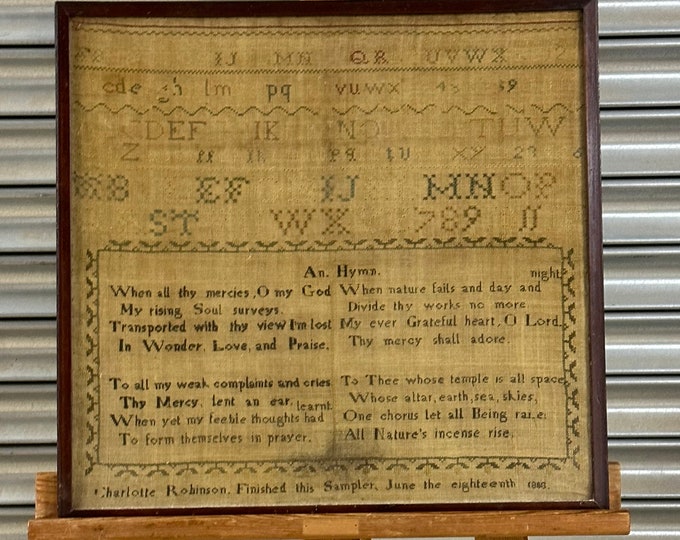 IJ MN QR UVWX
cde gh lm pq vuwx
CDEF IK NO TUW
Z pq tu XY
EF IJ MNOP
ST WX 789
An. Hymn.
When all thy mercies, O my God
My rising Soul surveys.
Transported with thy view I'm lost
In Wonder, Love, and Praise.
To all my weak complaints and cries
Thy Mercy, lent an ear,
learnt
When yet my feeble thoughts had
To form themselves in prayer.
night
When nature fails and day and
Divide thy works no more
My ever Grateful heart, O Lord,
Thy mercy shall adore.
To Thee whose temple is all space
Whose altar, earth, sea, skies,
One chorus let all Being raise
All Nature's incense rise.
Charlotte Robinson. Finished this Sampler, June the eighteenth